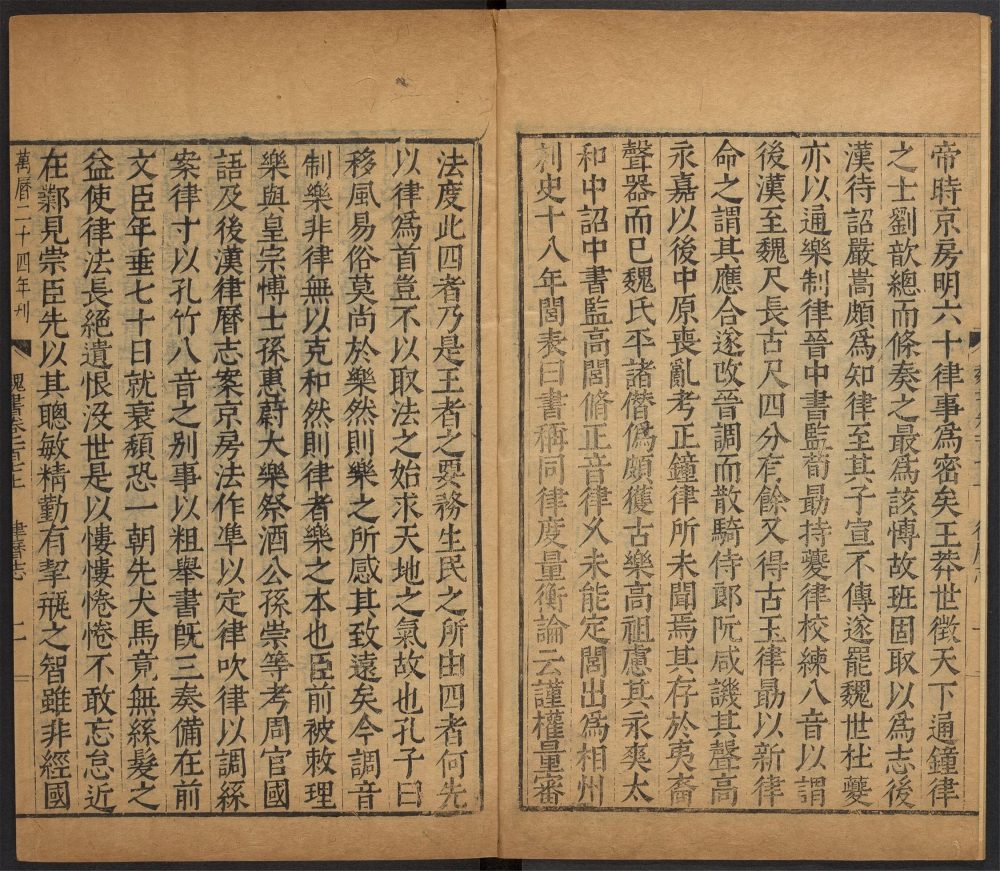 帝時京房明六十律事爲密矣王莽世徵天下通鐘律
之士劉歆總而條奏之最爲該慱故班固取以爲志後
漢待詔嚴嵩頗爲知律至其子宣不傳遂罷魏世杜夔
亦以通樂制律晉中書監荀勗持夔律校練八音以謂
後漢至魏尺長古尺四分有餘又得古玉律勗以新律
命之謂其應合遂改晉調而散騎侍郎阮咸譏其聲高
永嘉以後中原喪亂考正鐘律所未聞焉其存於夷裔
聲器而巳魏氏平諸僣僞頗獲古樂高祖慮其永爽太
和中詔中書監高閭脩正音律乆未能定閭出爲相州
刺史十八年閭表曰書稱同律度量衡論云謹權量審
法度此四者乃是王者之要務生民之所由四者何先
以律爲首豈不以取法之始求天地之氣故也孔子曰
移風易俗莫尚於樂然則樂之所感其致遠矣今調音
制樂非律無以克和然則律者樂之本也臣前被敕理
樂與皇宗慱士孫惠蔚大樂祭酒公孫崇等考周官國
語及後漢律曆志案京房法作準以定律吹律以調絲
案律寸以孔竹八音之别事以粗舉書旣三奏備在前
文臣年垂七十日就衰頽恐一朝先犬馬竟無絲髮之
益使律法長絕遺恨没世是以慺慺惓惓不敢忘怠近
在鄴見崇臣先以其聰敏精勤有挈瓶之智雖非經國
萬曆二十四年刊
魏書卷一百七上 律曆志 二